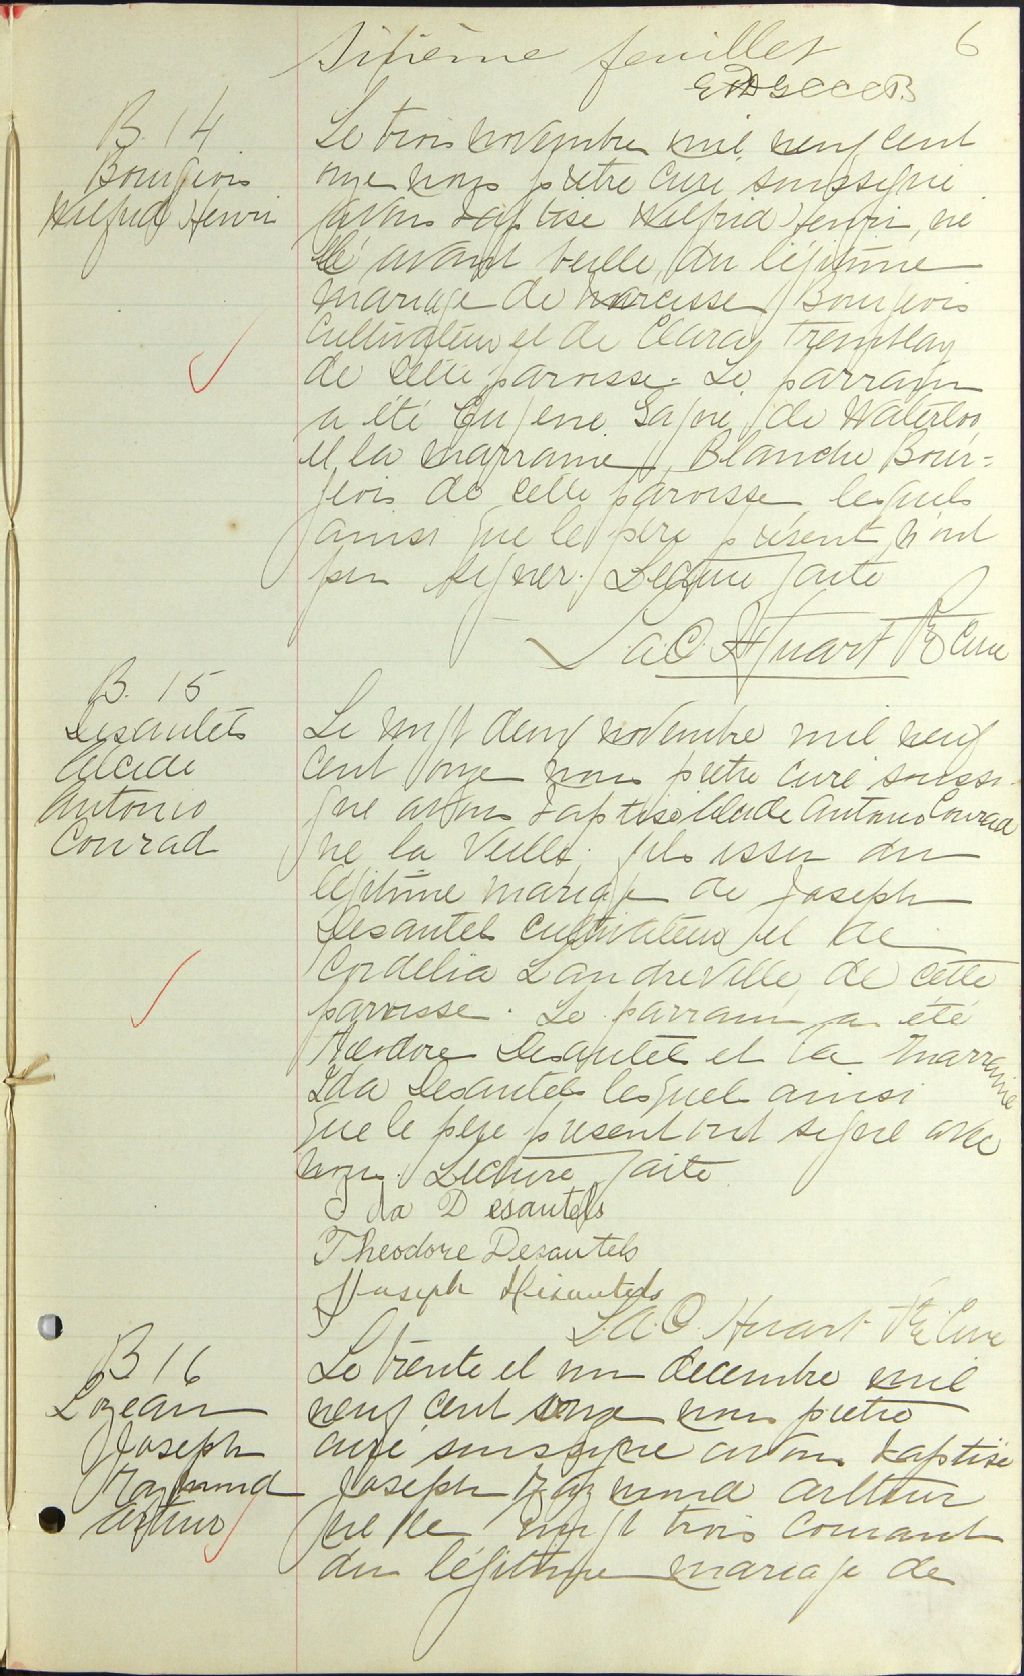 Sixième feuillet
6
B. 14
Bourgeois
Wilfrid Henri
Le trois novembre mil neuf cent
onze nous prêtre curé soussigné
avons baptisé Wilfrid Henri, né
le avant veille du légitime
mariage de Narcisse Bourgeois
cultivateur et de Clara Tremblay
de cette paroisse. Le parrain
a été Eugène de Waterloo
et la marraine Blanche Bour=
geois de cette paroisse lesquels
ainsi que le père présent n'ont
pu signer. Lecture faite
L.A.O. Huart Ptre Curé
B. 15
Desautels
Alcide
Antonio
Conrad
Le vingt deux novembre mil neuf
cent onze nous prêtre curé soussi-
gné avons baptisé Alcide Antonio Conrad
né la veille, fils issu du
légitime mariage de Joseph
Desautel cultivateur et de
Cordelia Landreville de cette
paroisse. Le parrain a été
Théodore Desautel et la marraine
Ida Desautels lesquels ainsi
que le père présent ont signé avec
nous. Lecture faite
Ida Desautels
Theodore Desautels
Joseph Desautels
L.A.O. Huart Ptre Curé
B 16
Lozeau
Joseph
Raymond
Arthur
Le trente et un decembre mil
neuf cent onze nous prêtre
curé soussigné avons baptisé
Joseph Raymond Arthur
né le vingt trois courant
du légitime mariage de